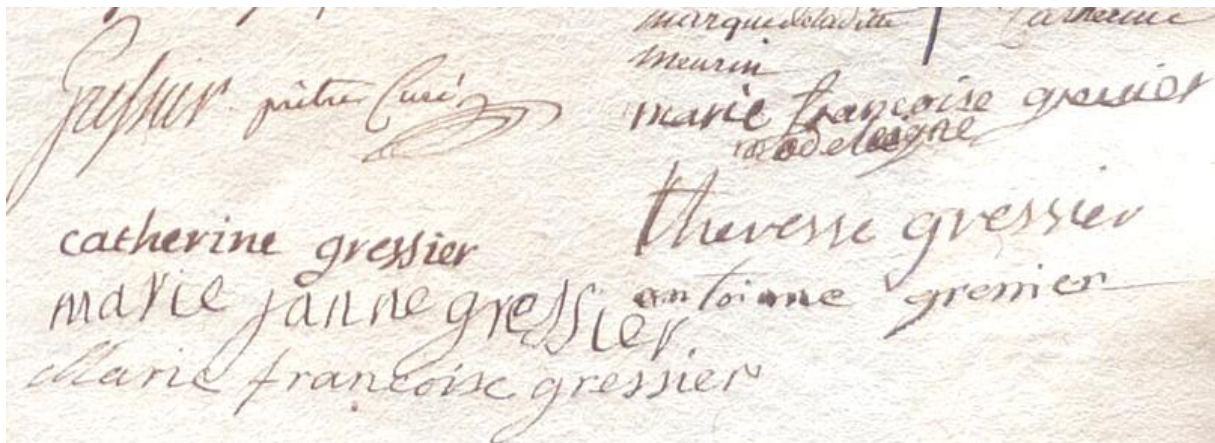 marque de laditte Catherine
meurin
Gressier prêtre Curé
marie françoise gressier
madeleigne
catherine gressier
theresse gressier
marie janne gressier
antoinne gressier
Marie francoise gressier